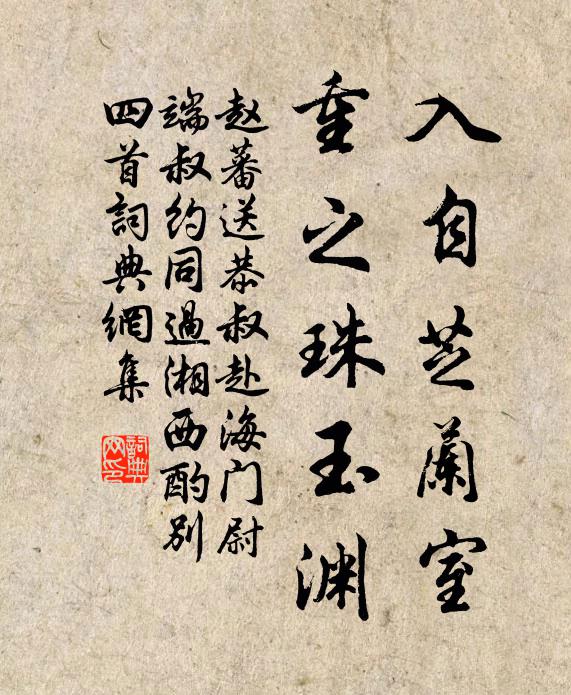 入自芝蘭室
重之珠玉渊
赵蕃送恭叔赴海门尉
端叔约同過湘西酌别
四首詞典網集
詞典
网印